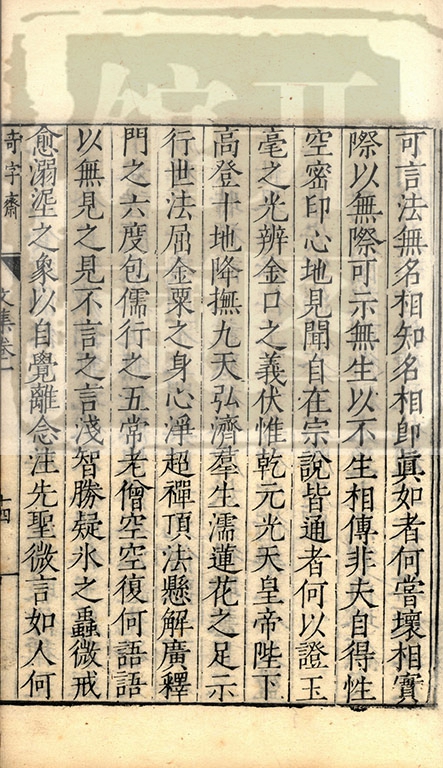 可言法無名相知名相即眞如者何嘗壞相實
際以無際可示無生以不生相傳非夫自得性
空密印心地見聞自在宗說皆通者何以證玉
毫之光辨金口之義伏惟乾元光天皇帝陛下
高登十地降撫九天弘濟羣生濡蓮花之足示
行世法屈金粟之身心淨超禪頂法懸解廣釋
門之六度包儒行之五常老僧空空復何語語
以無見之見不言之言淺智勝疑氷之蟲微戒
愈溺埿之象以自覺離念注先聖微言如人何
奇字齋
文集卷一
十四